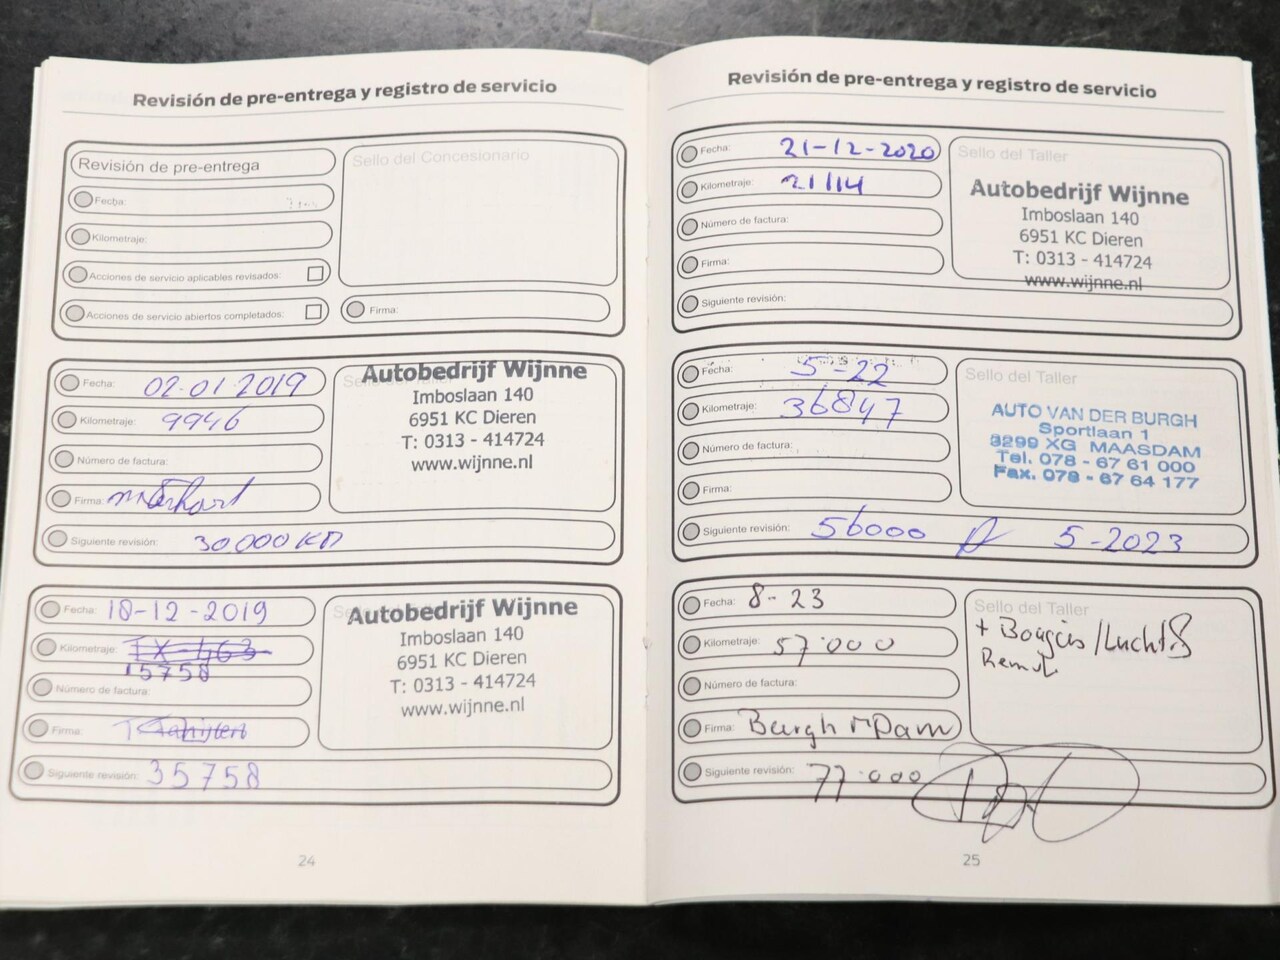 Revisión de pre-entrega y registro de servicio
Revisión de pre-entrega
Fecha:
Kilometraje:
Acciones de servicio aplicables revisados:
Acciones de servicio abiertos completados:
Sello del Concesionario
Firma:
Fecha: 02-01-2019
Kilometraje: 9946
Número de factura:
Firma:
Siguiente revisión: 30.000 KM
Sello del Taller
Autobedrijf Wijnne
Imboslaan 140
6951 KC Dieren
T: 0313 - 414724
www.wijnne.nl
Fecha: 18-12-2019
Kilometraje:
15758
Número de factura:
Firma:
Siguiente revisión: 35758
Autobedrijf Wijnne
Imboslaan 140
6951 KC Dieren
T: 0313 - 414724
www.wijnne.nl
24
Revisión de pre-entrega y registro de servicio
Fecha: 21-12-2020
Kilometraje: 21114
Número de factura:
Firma:
Siguiente revisión:
Sello del Taller
Autobedrijf Wijnne
Imboslaan 140
6951 KC Dieren
T: 0313 - 414724
www.wijnne.nl
Fecha: 5-22
Kilometraje: 36847
Número de factura:
Firma:
Siguiente revisión: 56000 5-2023
Sello del Taller
AUTO VAN DER BURGH
Sportlaan 1
3299 XG MAASDAM
Tel. 078 - 67 61 000
Fax. 078 - 67 64 177
Fecha: 8-23
Kilometraje: 57.000
Número de factura:
Firma: Burgh
Siguiente revisión: 77.000
Sello del Taller
+ Bougies/Lucht
25